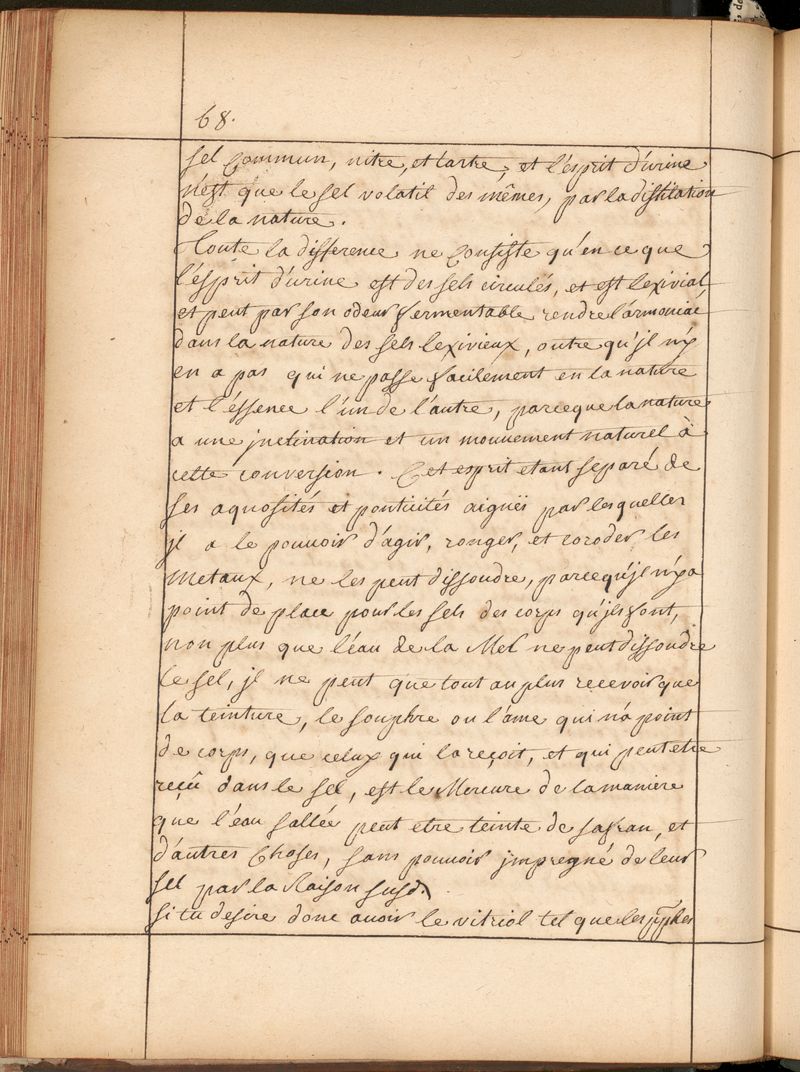 68.
sel Commun, nitre, et tartre, et l'esprit d'urine
n'est que le sel volatil des mêmes, par la distilation
de la nature.
Toute la difference ne Consiste qu'en ce que
l'esprit d'urine est des sels circulés, et est lexivial,
et peut par son odeur fermentable rendre l'armoniac
dans la nature des sels lexivieux, outre qu'jl n'y
en a pas qui ne passe facilement en la nature
et l'éssence l'un de l'autre, parceque la nature
a une jnclination et un mouuement naturel à
cette conversion. Cet esprit etant separé de
ses aquosités et ponticités aiguës par lesquelles
jl a le pouuoir d'agir, ronger, et coroder les
Metaux, ne les peut dissoudre, parcequ'jl n'y a
point de place pour les sels des corps qu'jls font,
non plus que l'éau de la Mer ne peut dissoudre
le sel, jl ne peut que tout au plus recevoir que
la teinture, le souphre ou l'ame qui n'a point
de corps, que celuy qui la reçoit, et qui peut etre
reçû dans le sel, est le Mercure de la maniere
que l'éau sallée peut etre teinte de safran, et
d'autres Choses, sans pouuoir jmpregné de leur
sel par la Raison susd.
si tu desire donc auoir le vitriol tel que les